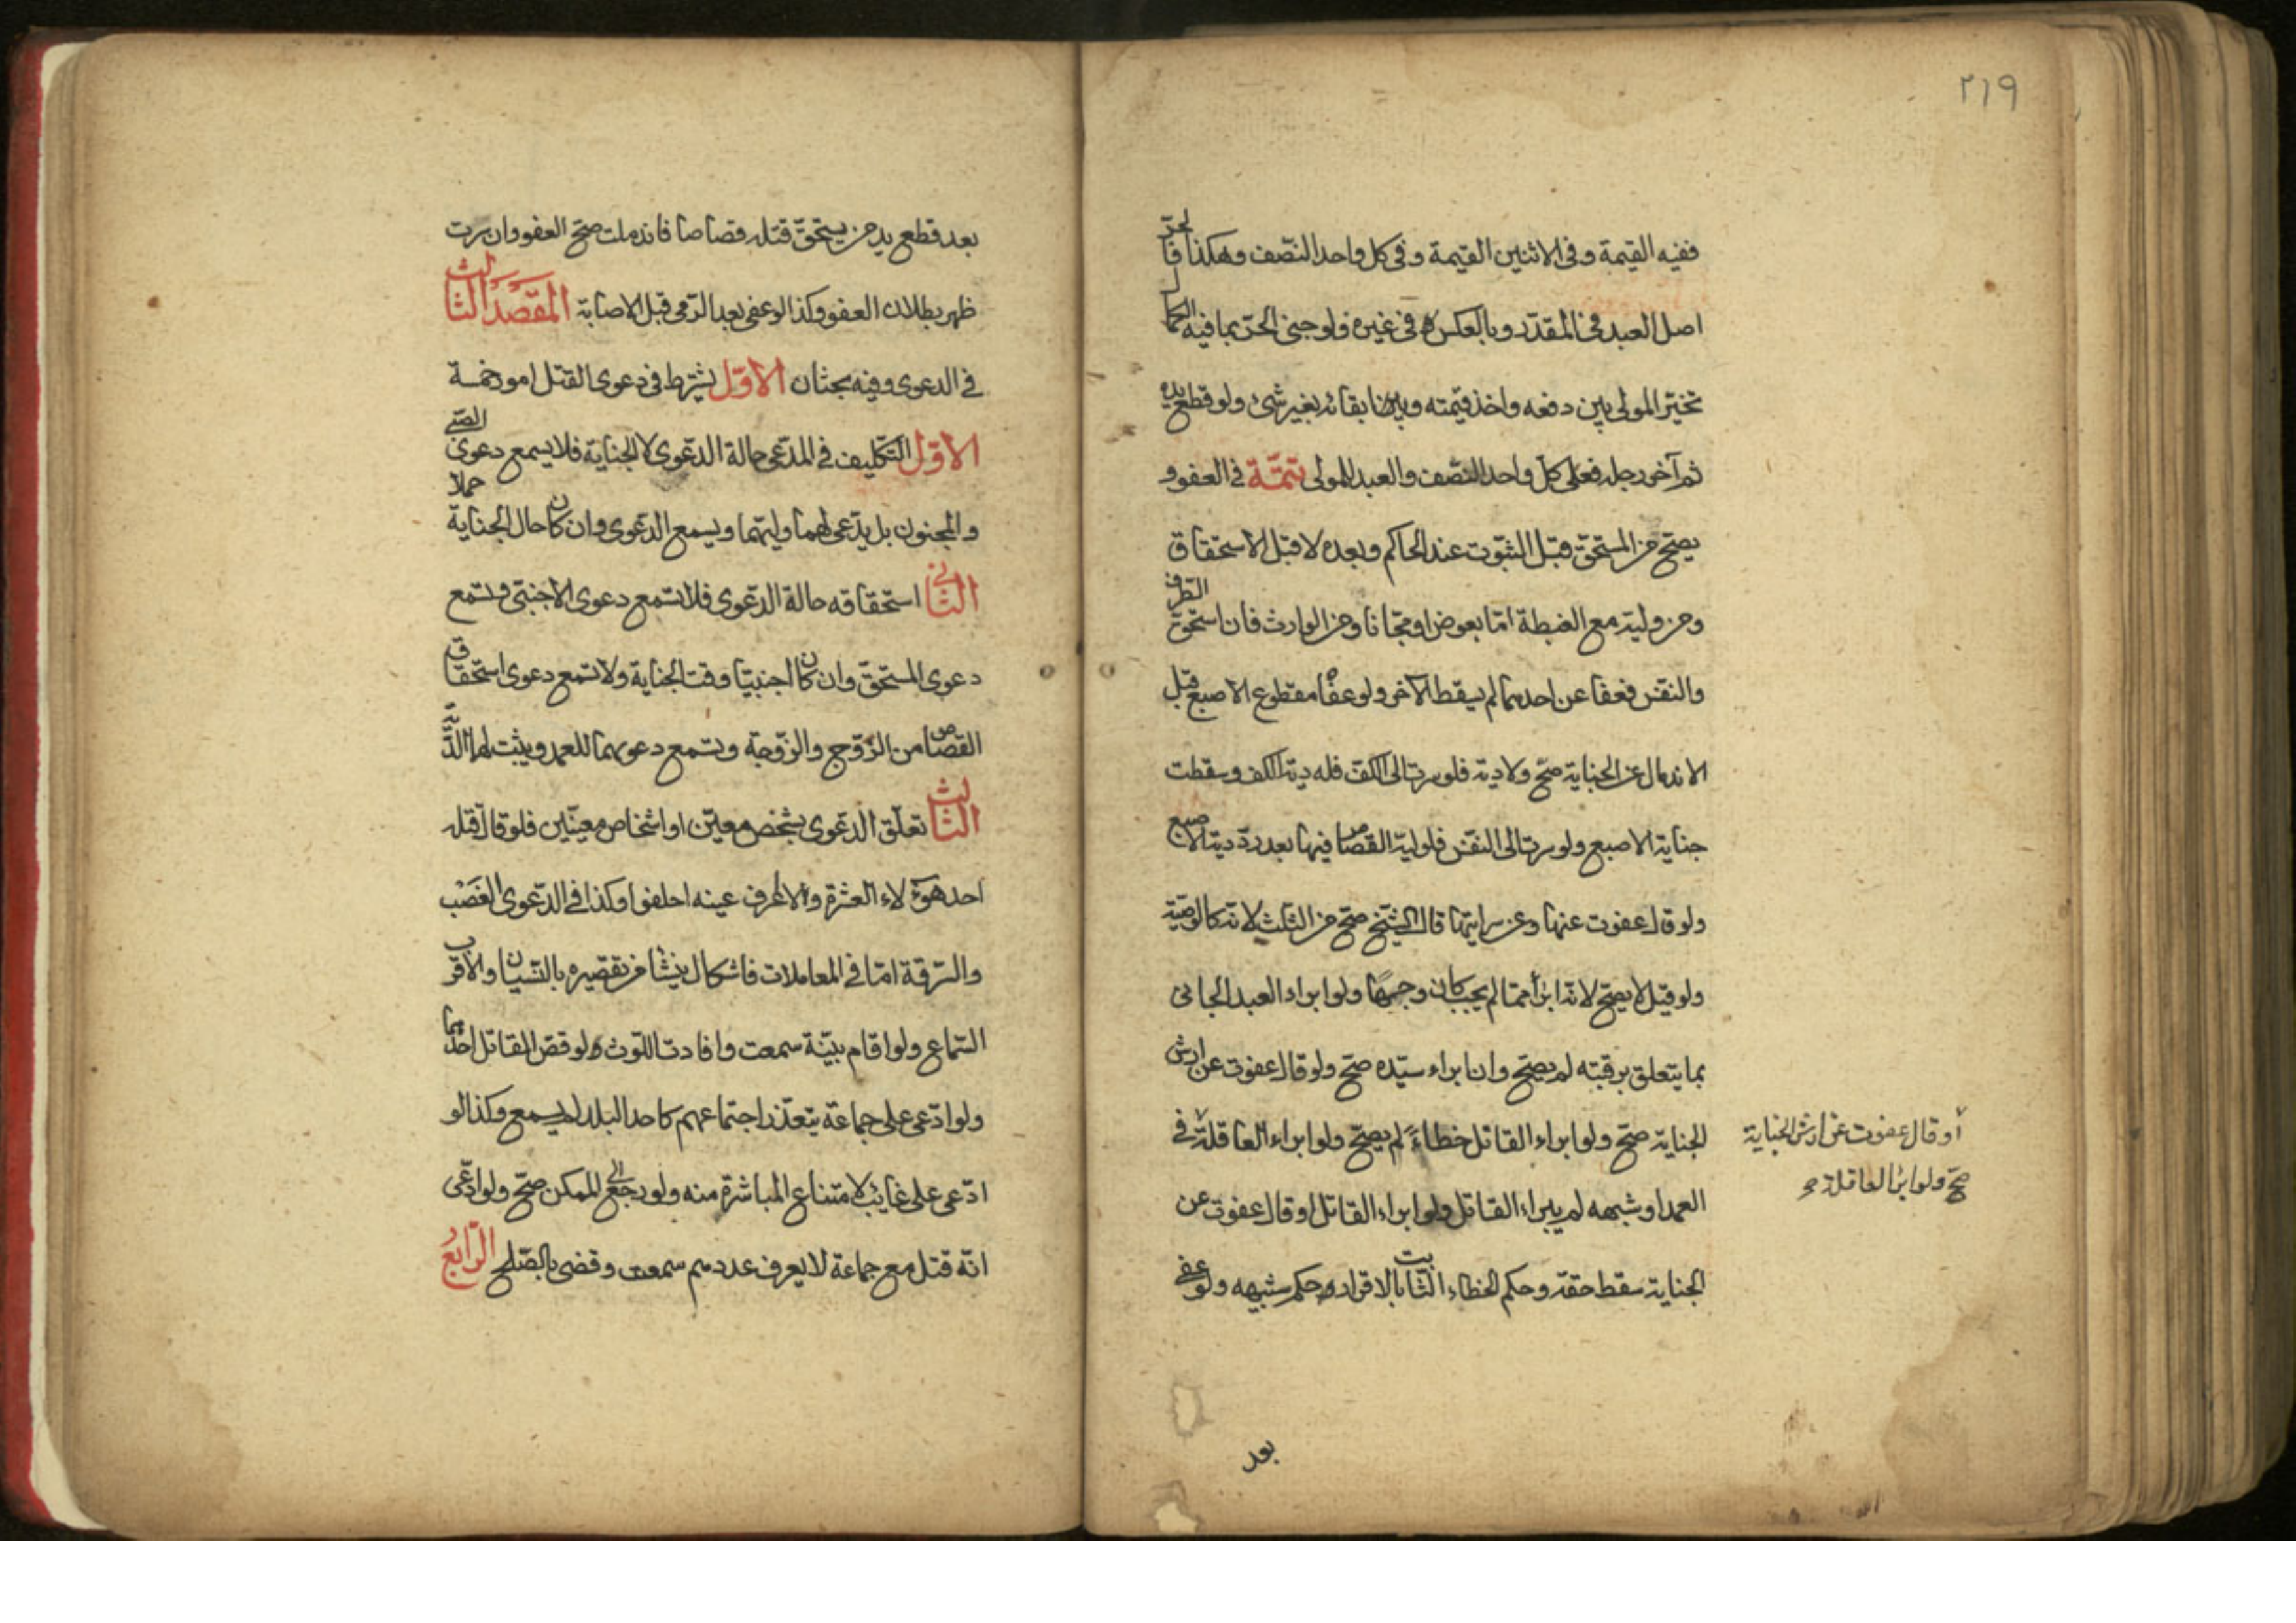 ٢١٩
ففيه القيمة وفى الاثنين القيمة وفى كل واحد النصف وهكذا فالحرّ
اصل العبد فى المقدّر وبالعكس فى غيره فلو جنى الحرّ بما فيه الكمال
تخيّر المولى بين دفعه واخذ قيمته وبين ابقائه بغير شئ ولو قطع يده
ثم آخر رجله فعلى كل واحد النصف والعبد للمولى تتمّة فى العفو و
يصحّ من المستحقّ قبل الثبوت عند الحاكم وبعده لا قبل الاستحقاق
ومن وليّه مع الغبطة امّا بعوض او مجّانا ومن الوارث فان استحقّ الطرف
والنفس فعفا عن احدهما لم يسقط الآخر ولو عفا مقطوع الاصبع قبل
الاندمال عن الجناية صحّ ولا دية فلو سرت الى الكف فله دية الكف وسقطت
جناية الاصبع ولو سرت الى النفس فلوليّه القصاص فيها بعد ردّ دية الاصبع
ولو قال عفوت عنها وعن سرايتها قال الشيخ صحّ من الثلث لانّه كالوصيّة
ولو قيل لا يصحّ لانّه ابرأ ممّا لم يجب كان وجها ولو ابراء العبد الجانى
بما يتعلق برقبته لم يصحّ وان ابراء سيّده صحّ ولو قال عفوت عن ارش
الجناية صحّ ولو ابراء القاتل خطاءً لم يصحّ ولو ابراء العاقلة فى
أو قال عفوت عن ارش الجناية
صحّ ولو ابرأ العاقلة صح
العمد او شبهه لم يبراء القاتل ولو ابراء القاتل او قال عفوت عن
الجناية سقط حقه وحكم الخطاء الثابت بالاقرار حكم شبيهه ولو عفى
بعد
بعد قطع يد من يستحقّ قتله قصاصا فاندملت صحّ العفو وان سرت
ظهر بطلان العفو وكذا لو عفى بعد الرّمى قبل الاصابة المقصد الثالث
فى الدعوى وفيه بحثان الاوّل يشترط فى دعوى القتل امور خمسة
الاوّل التكليف فى المدّعى حالة الدعوى لا الجناية فلا يسمع دعوى الصبى
والمجنون بل يدّعى لهما وليّهما ويسمع الدعوى وان كان حال الجناية حملا
الثانى استحقاقه حالة الدعوى فلا تسمع دعوى الاجنبىّ وتسمع
دعوى المستحقّ وان كان اجنبيّا وقت الجناية ولا تسمع دعوى استحقاق
القصاص من الزّوج والزّوجة وتسمع دعوىهما للعمد ويثبت لهما الدّية
الثالث تعلّق الدعوى بشخص معيّن او اشخاص معيّنين فلو قال قتله
احد هؤلاء العشرة ولا اعرف عينه احلفوا وكذا فى الدّعوى الغصب
والسّرقة امّا فى المعاملات فاشكال ينشأ من تقصيره بالنسيان والاقرب
السّماع ولو اقام بيّنة سمعت وافادت اللّوث ولو قصّ القاتل احدهما
ولو ادّعى على جماعة يتعذّر اجتماعهم كاحد البلد لم يسمع وكذا لو
ادّعى على غايب لامتناع المباشرة منه ولو رجع الى الممكن صحّ ولو ادّعى
انّه قتل مع جماعة لا يعرف عددهم سمعت وقضى بالصّلح الرّابع